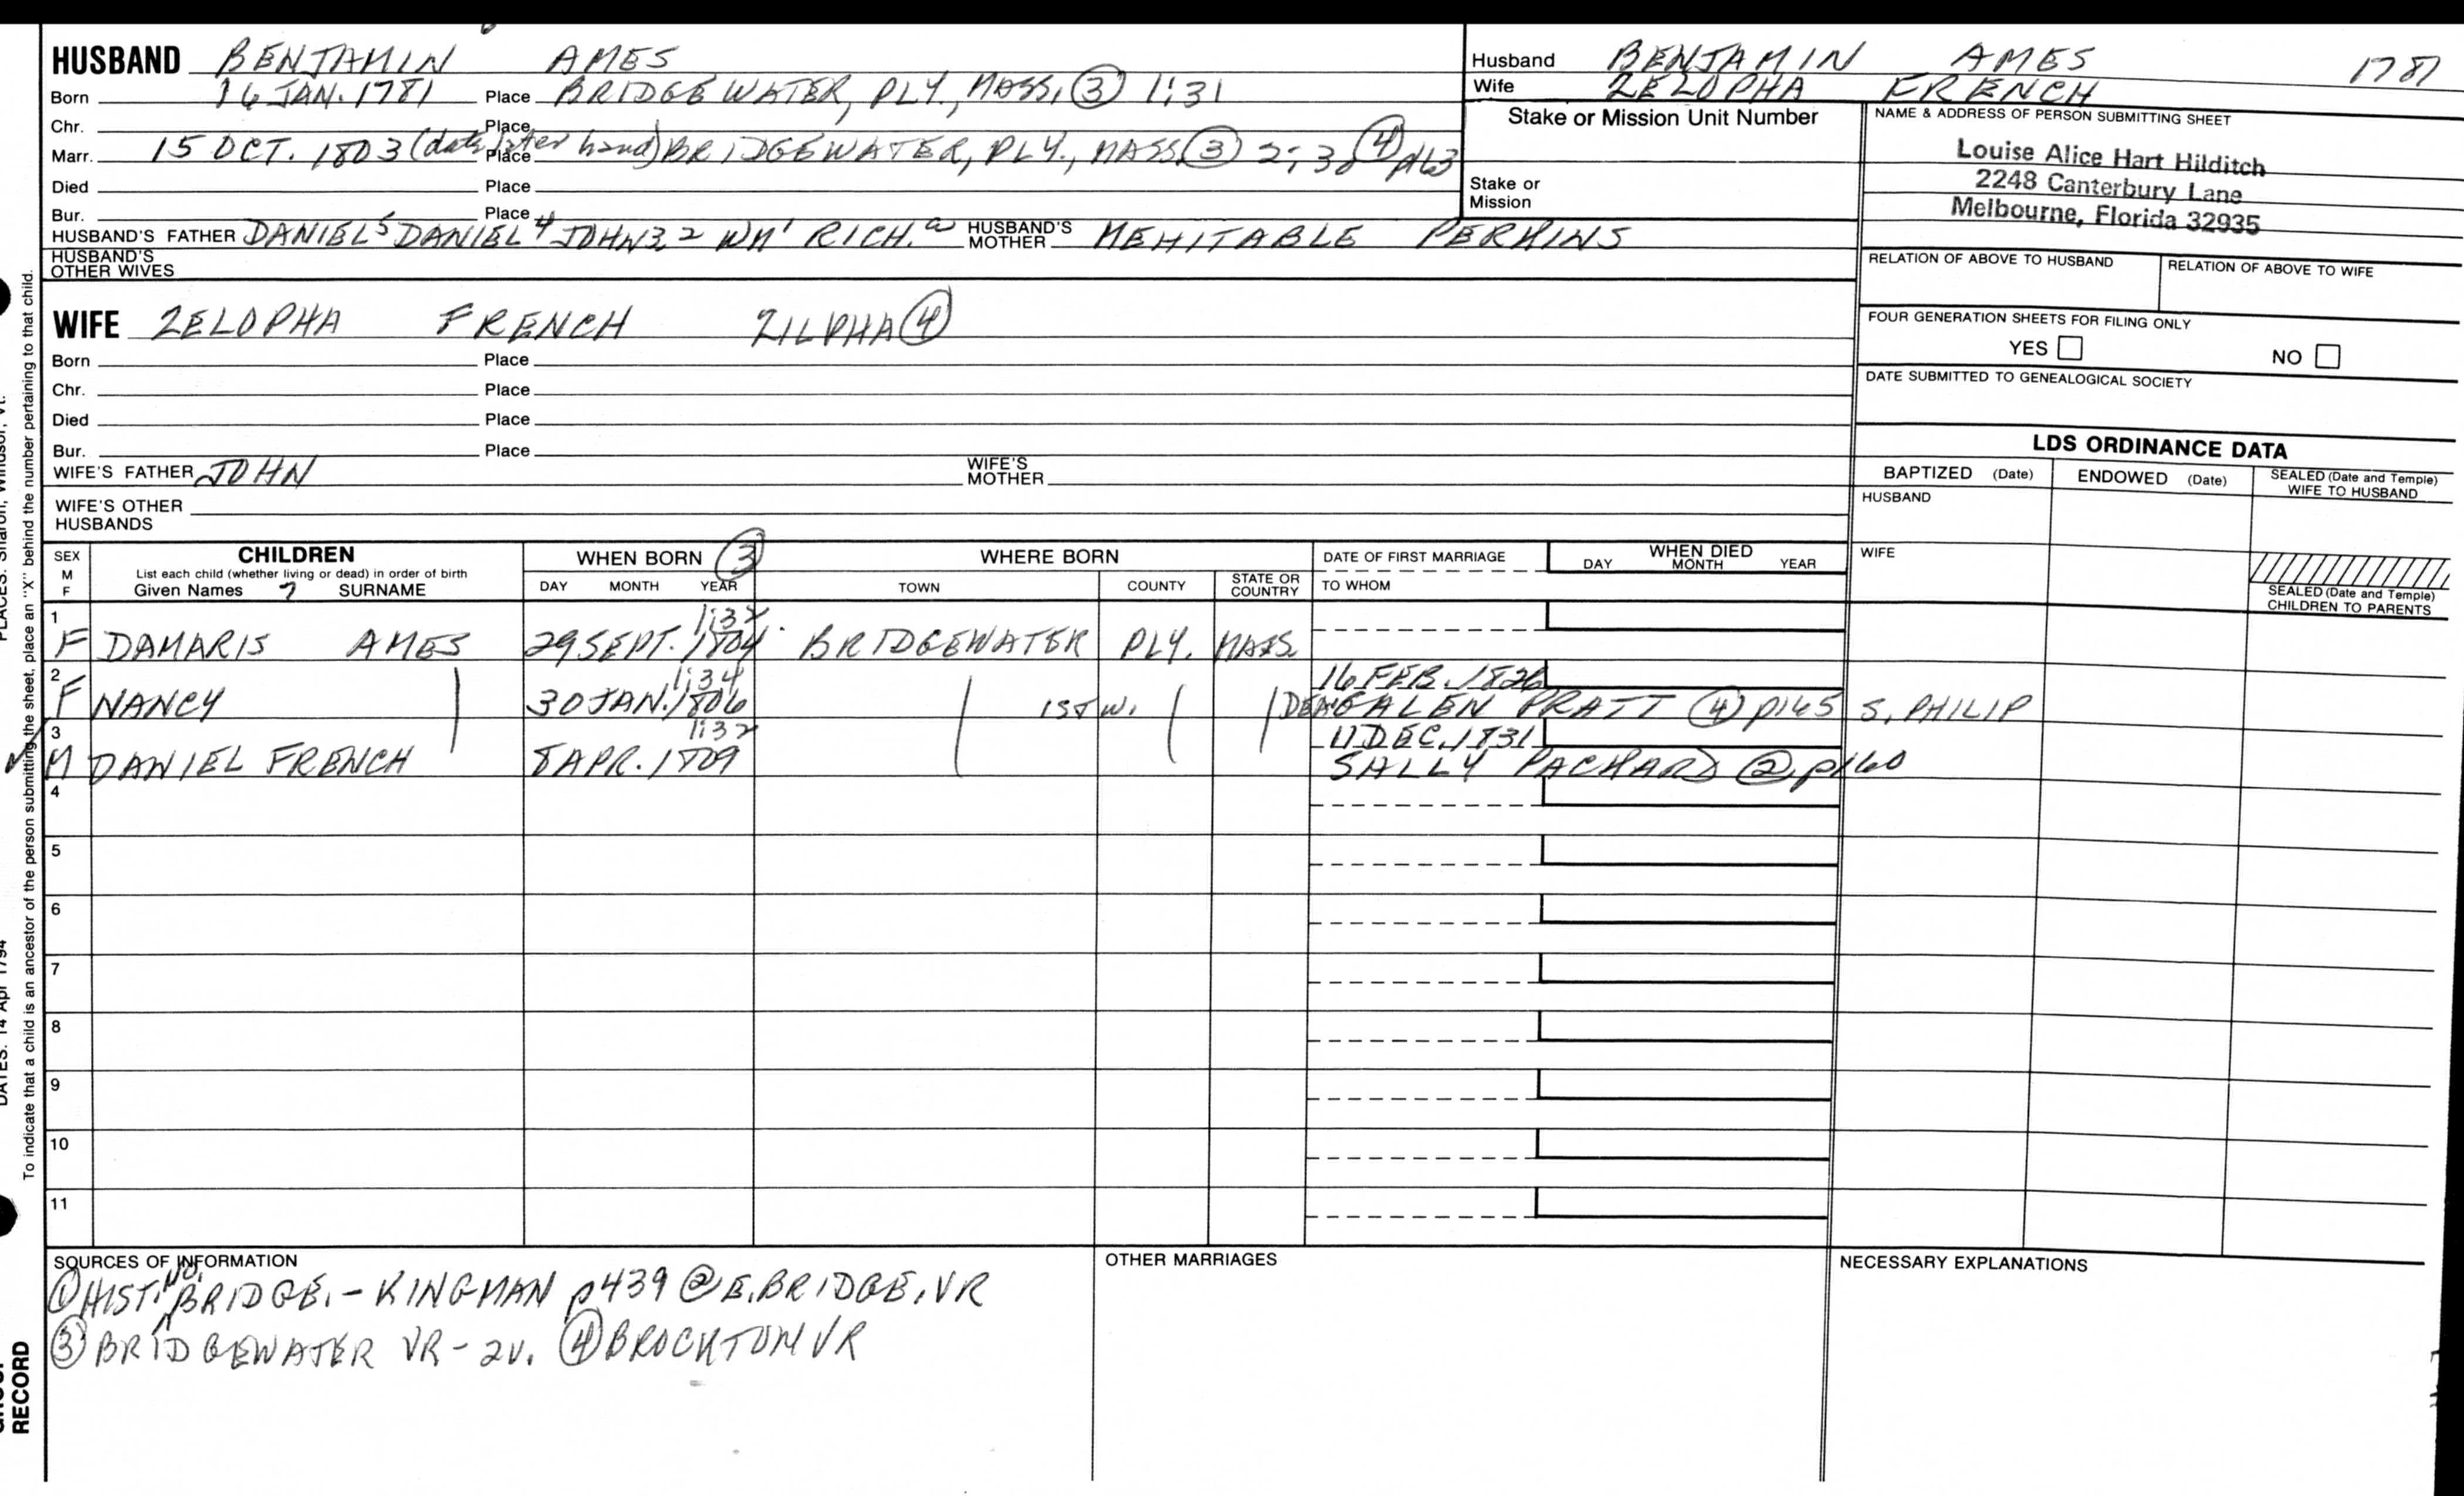 HUSBAND BENJAMIN AMES
Born 16 JAN. 1781 Place BRIDGEWATER, PLY., MASS. ③ 1:31
Chr. Place
Marr. 15 OCT. 1803 (date later hand) Place BRIDGEWATER, PLY., MASS ③ 2: ④ p163
Died Place
Bur. Place
HUSBAND'S FATHER DANIEL⁵ DANIEL⁴ JOHN³ ² WM' RICH.ᵃ HUSBAND'S MOTHER MEHITABLE PERKINS
HUSBAND'S OTHER WIVES
Husband BENJAMIN AMES 1781
Wife ZELOPHA FRENCH
Stake or Mission Unit Number
Stake or Mission
NAME & ADDRESS OF PERSON SUBMITTING SHEET
Louise Alice Hart Hilditch
2248 Canterbury Lane
Melbourne, Florida 32935
RELATION OF ABOVE TO HUSBAND RELATION OF ABOVE TO WIFE
FOUR GENERATION SHEETS FOR FILING ONLY
YES NO
DATE SUBMITTED TO GENEALOGICAL SOCIETY
WIFE ZELOPHA FRENCH ZILPHA ④
Born Place
Chr. Place
Died Place
Bur. Place
WIFE'S FATHER JOHN WIFE'S MOTHER
WIFE'S OTHER HUSBANDS
LDS ORDINANCE DATA
BAPTIZED (Date) ENDOWED (Date) SEALED (Date and Temple) WIFE TO HUSBAND
HUSBAND
WIFE
SEALED (Date and Temple)
CHILDREN TO PARENTS
SEX M F
CHILDREN
List each child (whether living or dead) in order of birth
Given Names SURNAME
WHEN BORN ③
DAY MONTH YEAR
WHERE BORN
TOWN COUNTY STATE OR COUNTRY
DATE OF FIRST MARRIAGE
TO WHOM
WHEN DIED
DAY MONTH YEAR
1 1:32
F DAMARIS AMES 29 SEPT. 1804 BRIDGEWATER PLY. MASS.
2 1:34 16 FEB. 1826
F NANCY 30 JAN. 1806 1ST W. DEA. GALEN PRATT ④ p165 S. PHILIP
3 1:32 11 DEC. 1831
M DANIEL FRENCH 8 APR. 1809 SALLY PACKARD ② p160
4
5
6
7
8
9
10
11
SOURCES OF INFORMATION
① HIST. NO. BRIDGE. - KINGMAN p439 ② E. BRIDGE. VR
③ BRIDGEWATER VR - 2V. ④ BROCKTON VR
OTHER MARRIAGES
NECESSARY EXPLANATIONS
To indicate that a child is an ancestor of the person submitting the sheet, place an "X" behind the number pertaining to that child.
PLACES: Sharon, Windsor, Vt.
DATES: 14 Apr 1794
RECORD